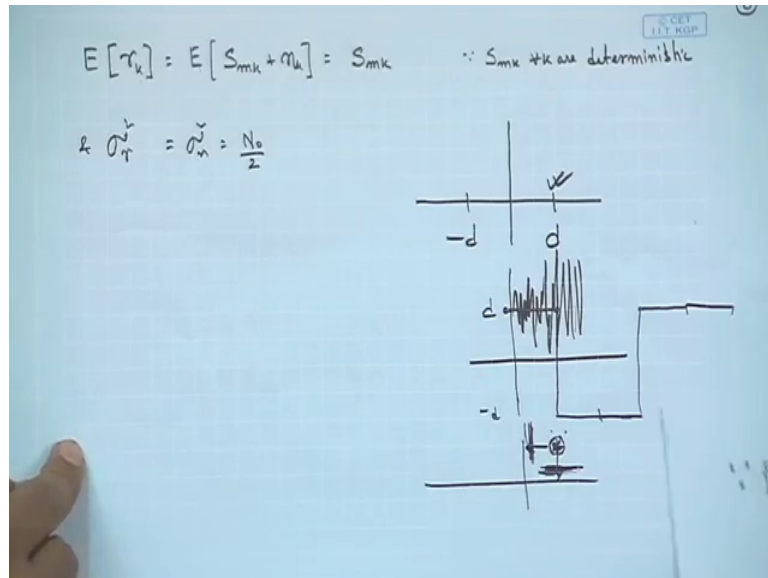 © CET
I.I.T. KGP
E[r_k] = E[S_mk + n_k] = S_mk ∵ S_mk ∀k are deterministic
& σ_r² = σ_n² = N₀/2
-d d
d
-d